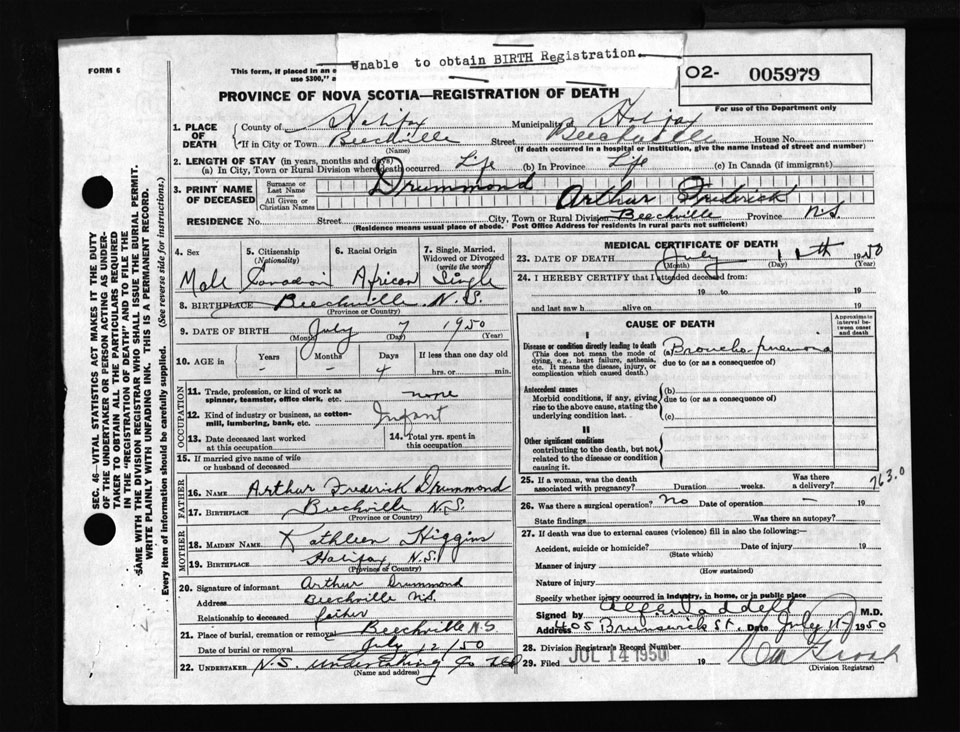 Unable to obtain BIRTH Registration
FORM 6
This form, if placed in an e
use $300," a
02- 005979
PROVINCE OF NOVA SCOTIA—REGISTRATION OF DEATH
For use of the Department only
1. PLACE OF DEATH { County of Halifax Municipality Halifax
If in City or Town Beechville (Name) Street Beechville House No.
(If death occurred in a hospital or institution, give the name instead of street and number)
2. LENGTH OF STAY (in years, months and days)
(a) In City, Town or Rural Division where death occurred Life (b) In Province Life (c) In Canada (if immigrant)
3. PRINT NAME OF DECEASED { Surname or Last Name Drummond
All Given or Christian Names Arthur Frederick
RESIDENCE No. Street City, Town or Rural Division Beechville Province N.S.
(Residence means usual place of abode. Post Office Address for residents in rural parts not sufficient)
4. Sex 5. Citizenship (Nationality) 6. Racial Origin 7. Single, Married, Widowed or Divorced (write the word)
Male Canadian African Single
8. BIRTHPLACE Beechville N.S.
(Province or Country)
9. DATE OF BIRTH July 7 1950
(Month) (Day) (Year)
10. AGE in { Years Months Days If less than one day old
- - 4 hrs. or min.
OCCUPATION
11. Trade, profession, or kind of work as spinner, teamster, office clerk, etc. none
12. Kind of industry or business, as cotton-mill, lumbering, bank, etc. Infant
13. Date deceased last worked at this occupation 14. Total yrs. spent in this occupation
15. If married give name of wife or husband of deceased
FATHER
16. NAME Arthur Frederick Drummond
17. BIRTHPLACE Beechville N.S.
(Province or Country)
MOTHER
18. MAIDEN NAME Kathleen Higgins
19. BIRTHPLACE Halifax, N.S.
(Province of Country)
20. Signature of informant Arthur Drummond
Address Beechville N.S.
Relationship to deceased father
21. Place of burial, cremation or removal Beechville N.S.
Date of burial or removal July 12/50
22. UNDERTAKER N.S. Undertaking Co Ltd
(Name and address)
MEDICAL CERTIFICATE OF DEATH
23. DATE OF DEATH July 11th 1950
(Month) (Day) (Year)
24. I HEREBY CERTIFY that I attended deceased from:
19 to 19
and last saw h alive on 19
CAUSE OF DEATH
Approximate interval between onset and death
I
Disease or condition directly leading to death (This does not mean the mode of dying, e.g., heart failure, asthenia, etc. It means the disease, injury, or complication which caused death.) (a) Broncho-pneumonia
due to (or as a consequence of)
Antecedent causes
Morbid conditions, if any, giving rise to the above cause, stating the underlying condition last.
(b)
due to (or as a consequence of)
(c)
II
Other significant conditions contributing to the death, but not related to the disease or condition causing it.
25. If a woman, was the death associated with pregnancy? Duration weeks. Was there a delivery?
763.0
26. Was there a surgical operation? no Date of operation - 19
State findings Was there an autopsy?
27. If death was due to external causes (violence) fill in also the following:
Accident, suicide or homicide? Date of injury 19
(State which)
Manner of injury
(How sustained)
Nature of injury
Specify whether injury occurred in industry, in home, or in public place
Signed by M.D.
Address 405 Brunswick St. Date July 11 1950
28. Division Registrar's Record Number
29. Filed JUL 14 1950 19
(Division Registrar)
SEC. 46—VITAL STATISTICS ACT MAKES IT THE DUTY
OF THE UNDERTAKER OR PERSON ACTING AS UNDER-
TAKER TO OBTAIN ALL THE PARTICULARS REQUIRED
IN THE "REGISTRATION OF DEATH" AND TO FILE THE
SAME WITH THE DIVISION REGISTRAR WHO SHALL ISSUE THE BURIAL PERMIT.
WRITE PLAINLY WITH UNFADING INK. THIS IS A PERMANENT RECORD.
Every item of information should be carefully supplied. (See reverse side for instructions.)